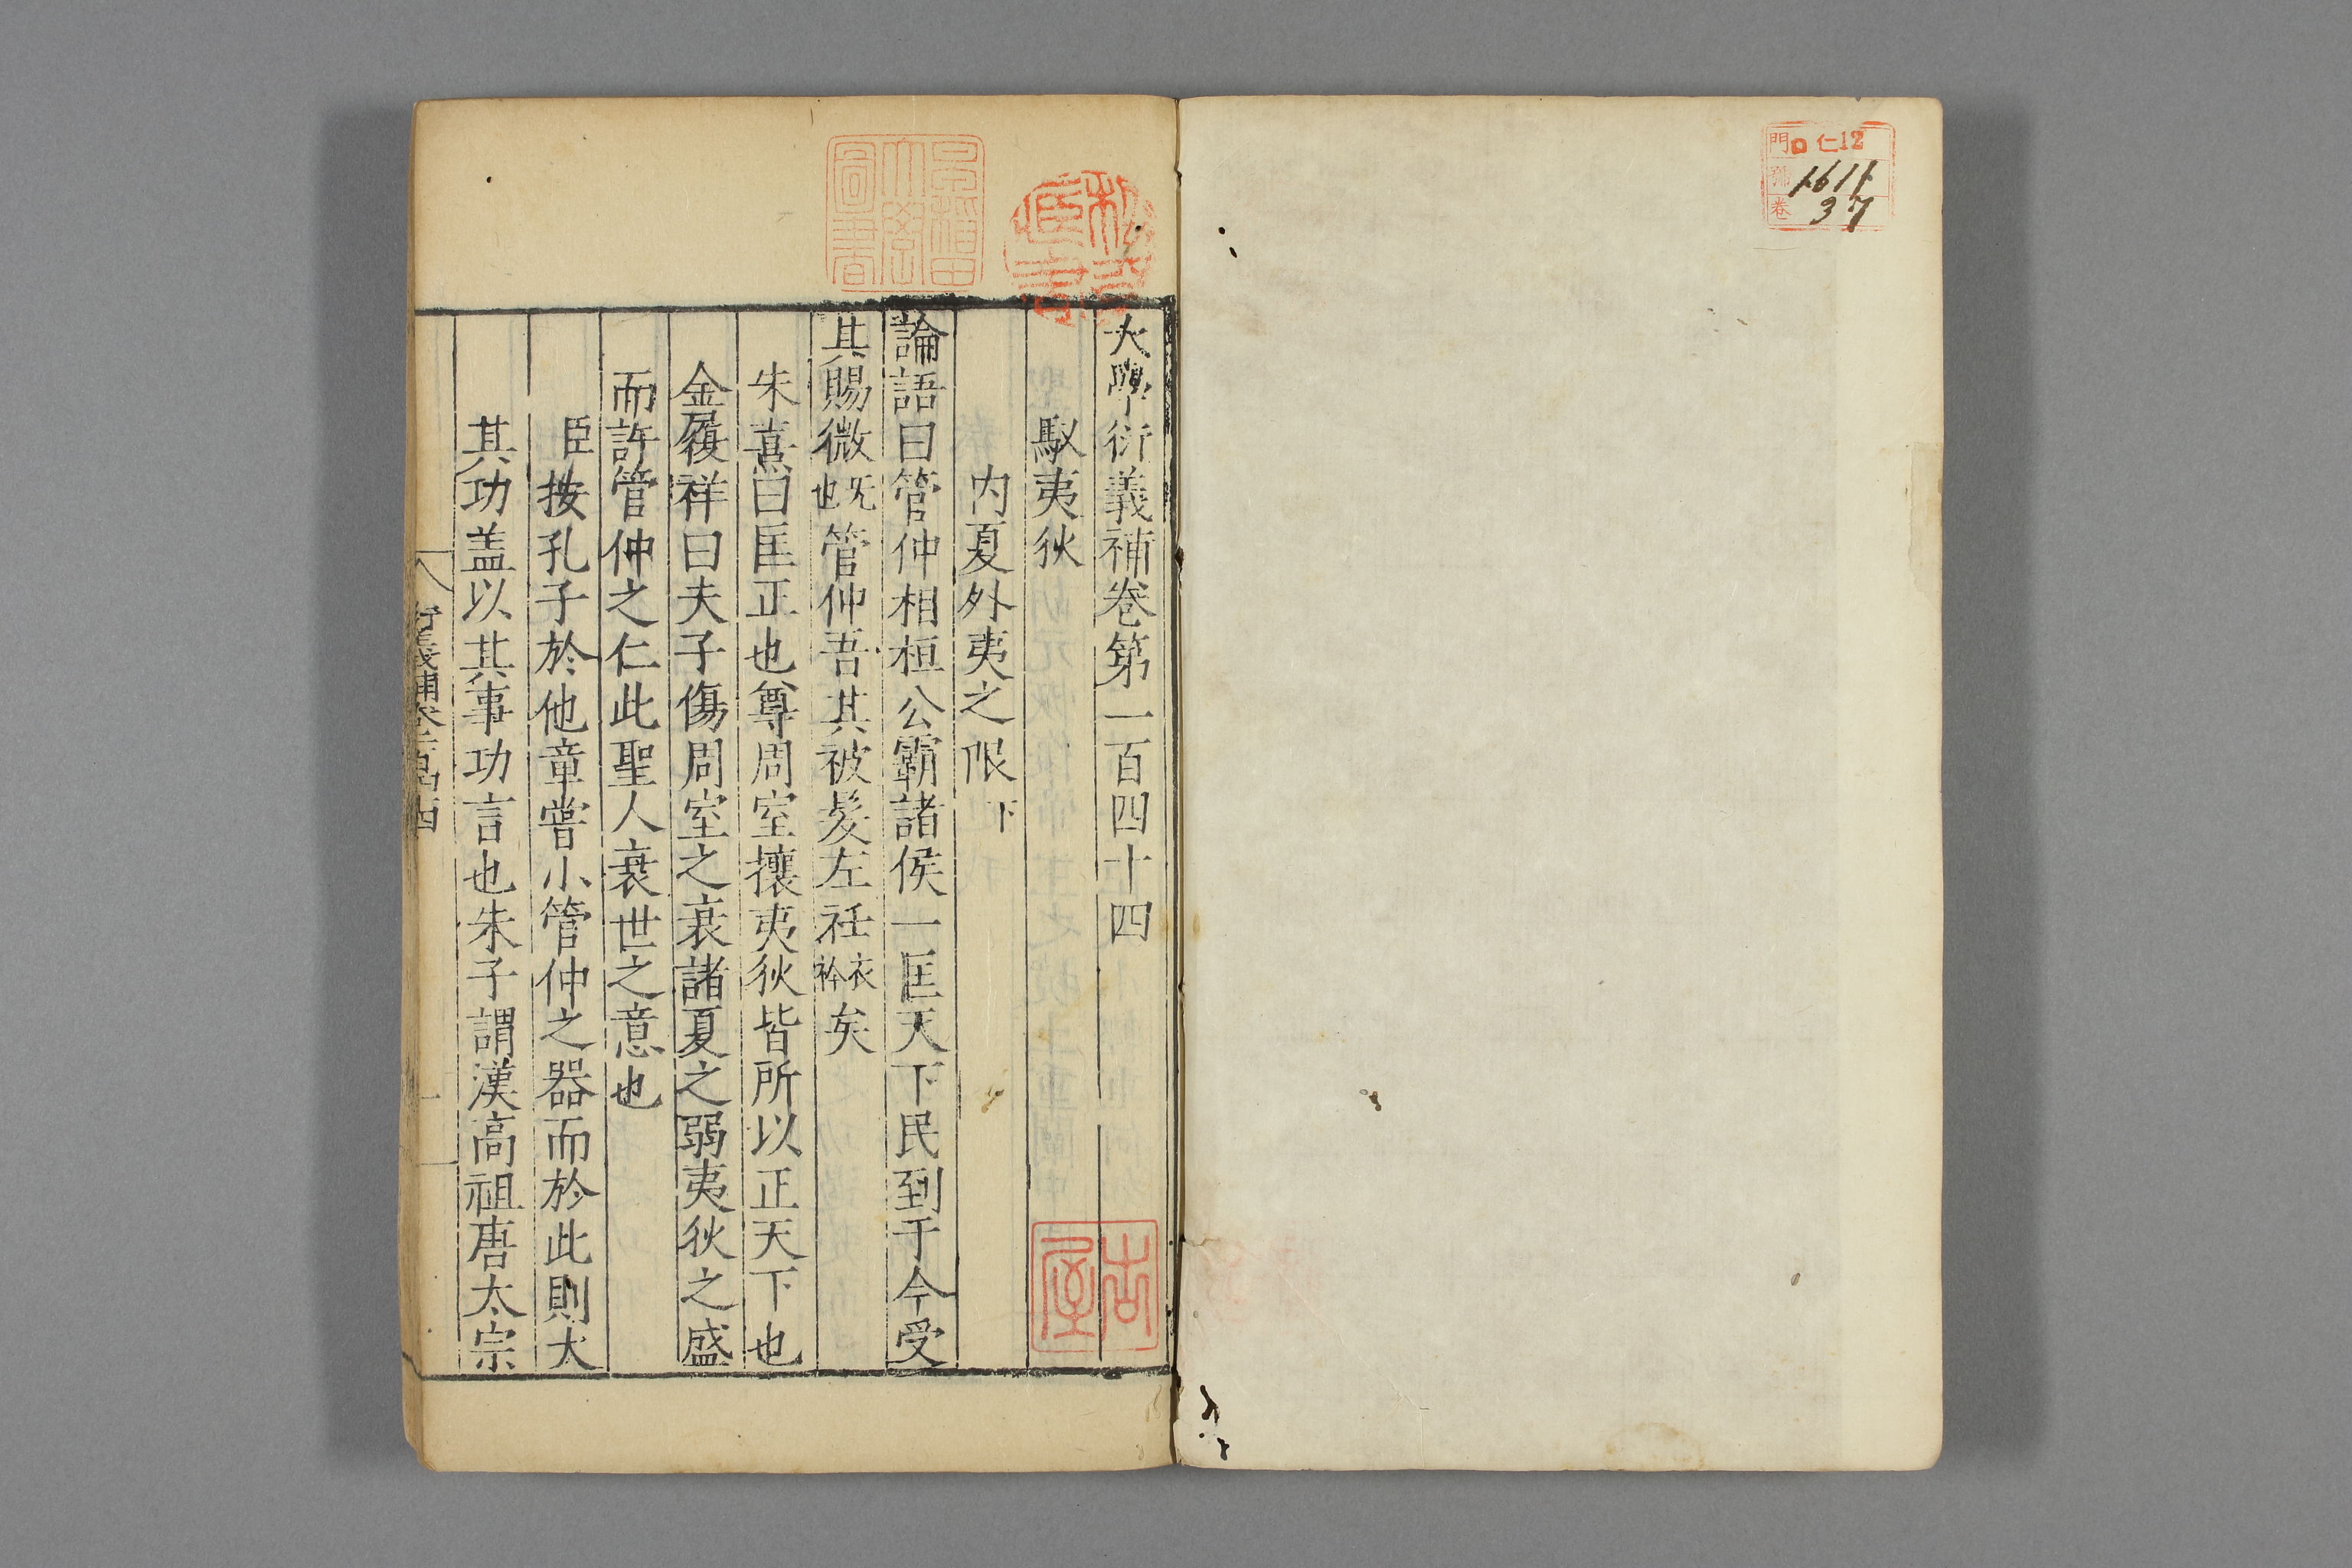 門 口 仁12
號 1611
卷 37
早稲田大學圖書
大學衍義補卷第一百四十四
馭夷狄
内夏外夷之限下
論語曰管仲相桓公霸諸侯一匡天下民到于今受
其賜微无也管仲吾其被髮左衽衣衿矣
朱熹曰匡正也尊周室攘夷狄皆所以正天下也
金履祥曰夫子傷周室之衰諸夏之弱夷狄之盛
而許管仲之仁此聖人衰世之意也
臣按孔子於他章嘗小管仲之器而於此則大
其功盖以其事功言也朱子謂漢高祖唐太宗
衍義補卷一百四十四
一